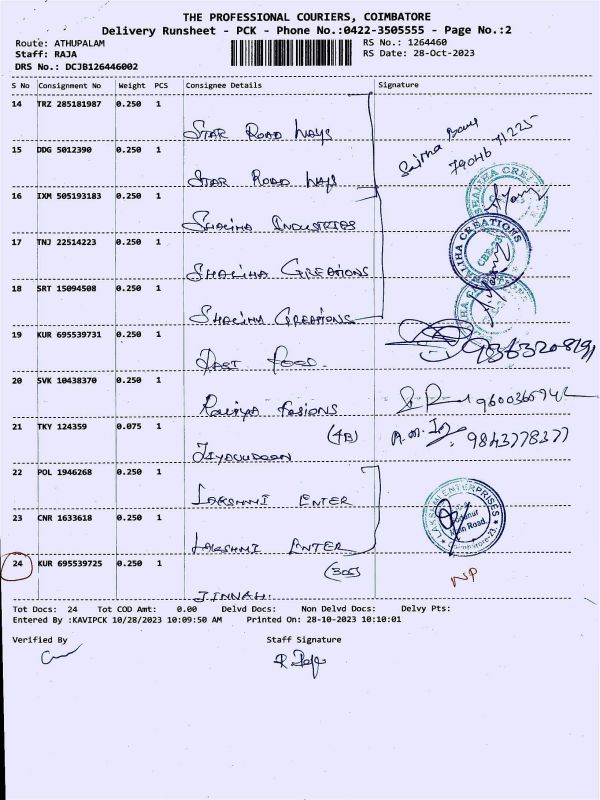 THE PROFESSIONAL COURIERS, COIMBATORE
Delivery Runsheet - PCK - Phone No.:0422-3505555 - Page No.:2
Route: ATHUPALAM RS No.: 1264460
Staff: RAJA RS Date: 28-Oct-2023
DRS No.: DCJB126446002
S No Consignment No Weight PCS Consignee Details Signature
14 TRZ 285181987 0.250 1
STAR ROAD WAYS
79046 71225
15 DDG 5012390 0.250 1
STAR ROAD WAYS
16 IXM 505193183 0.250 1
SHALIHA INDUSTRIES
17 TNJ 22514223 0.250 1
SHALIHA CREATIONS
SHALIHA CREATIONS
18 SRT 15094508 0.250 1
SHALIHA CREATIONS
19 KUR 695539731 0.250 1
FAST FOOD
20 SVK 10438370 0.250 1
FASIONS
21 TKY 124359 0.075 1
(4B) 9843778377
22 POL 1946268 0.250 1
LAKSHMI ENTER
23 CNR 1633618 0.250 1
LAKSHMI ENTER
LAKSHMI ENTERPRISES
Main Road,
24 KUR 695539725 0.250 1
(305)
JINNAH.
NP
Tot Docs: 24 Tot COD Amt: 0.00 Delvd Docs: Non Delvd Docs: Delvy Pts:
Entered By :KAVIPCK 10/28/2023 10:09:50 AM Printed On: 28-10-2023 10:10:01
Verified By Staff Signature